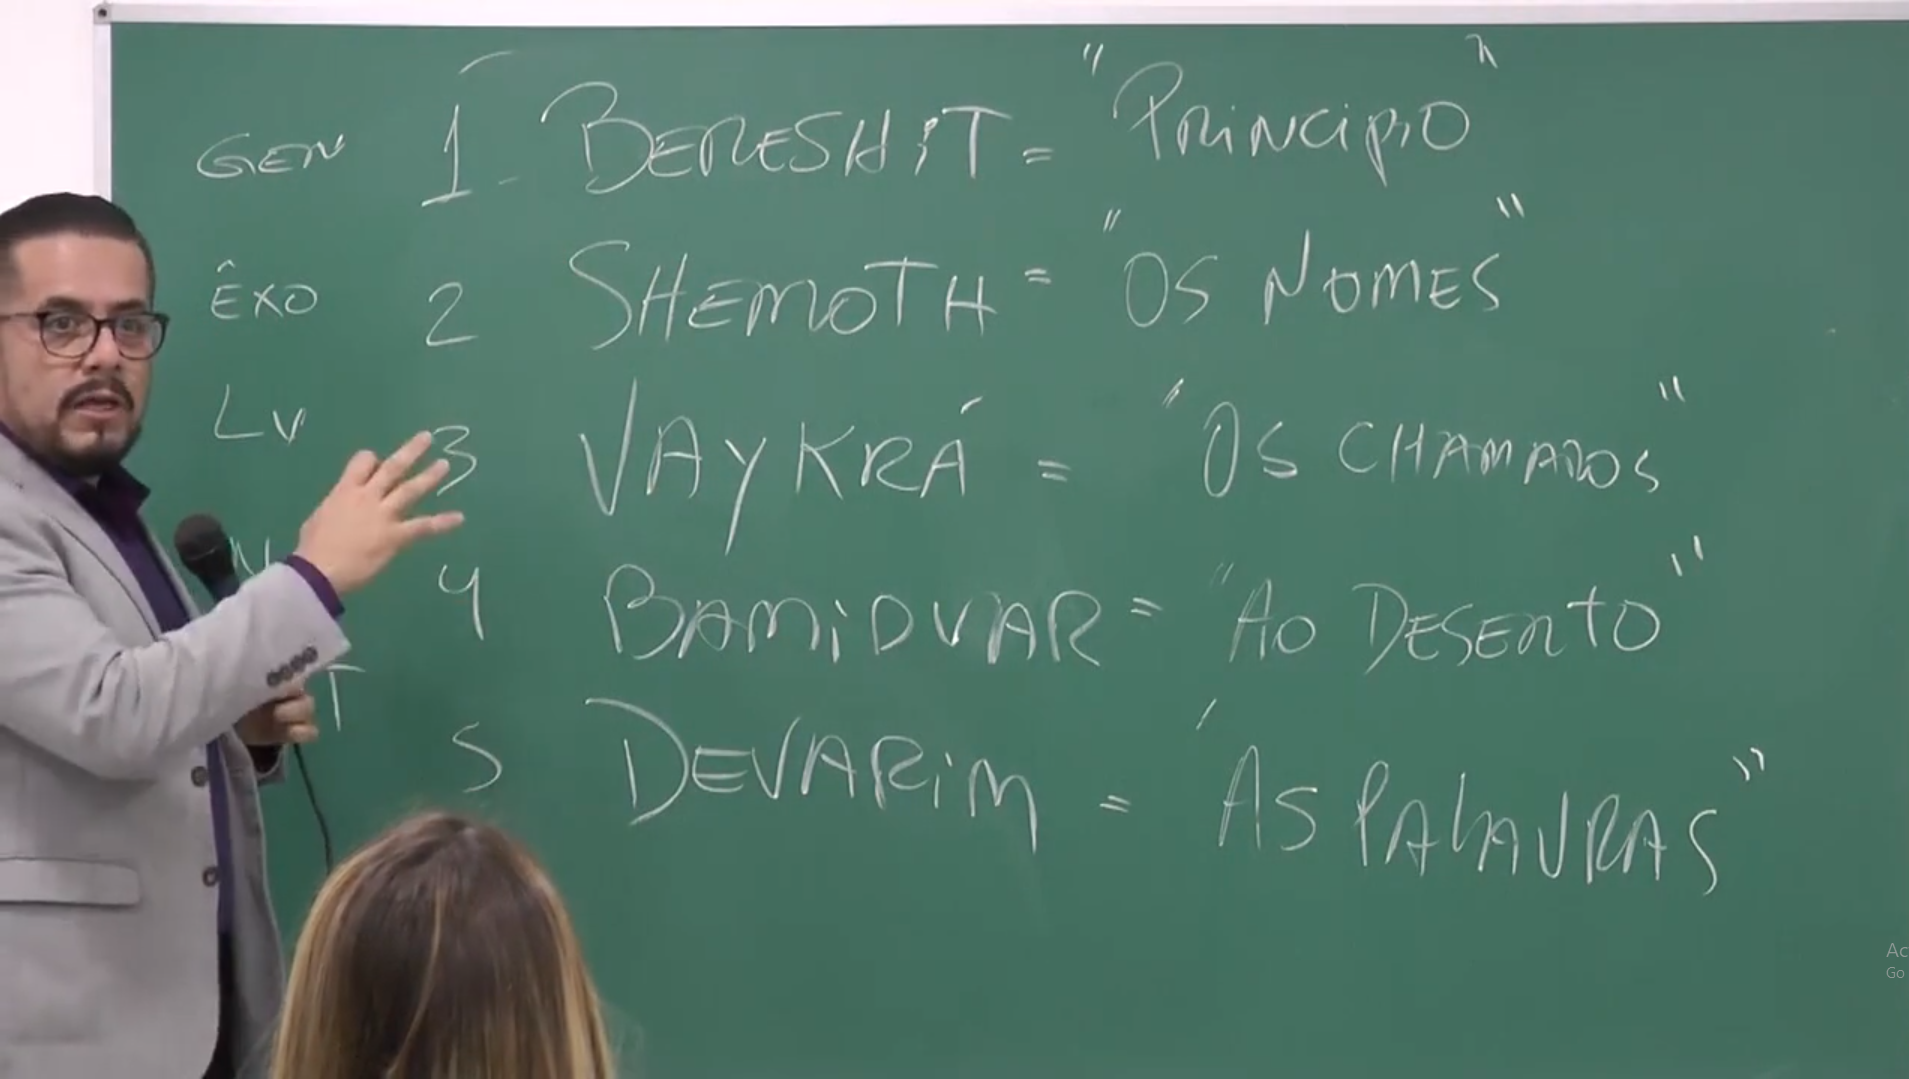 GEN 1 - BERESHIT = "PRINCIPIO"
ÊXO 2 SHEMOTH = "OS NOMES"
LV 3 VAYKRÁ = "OS CHAMADOS"
N 4 BAMIDVAR = "AO DESERTO"
T 5 DEVARIM = "AS PALAVRAS"
Ac
Go